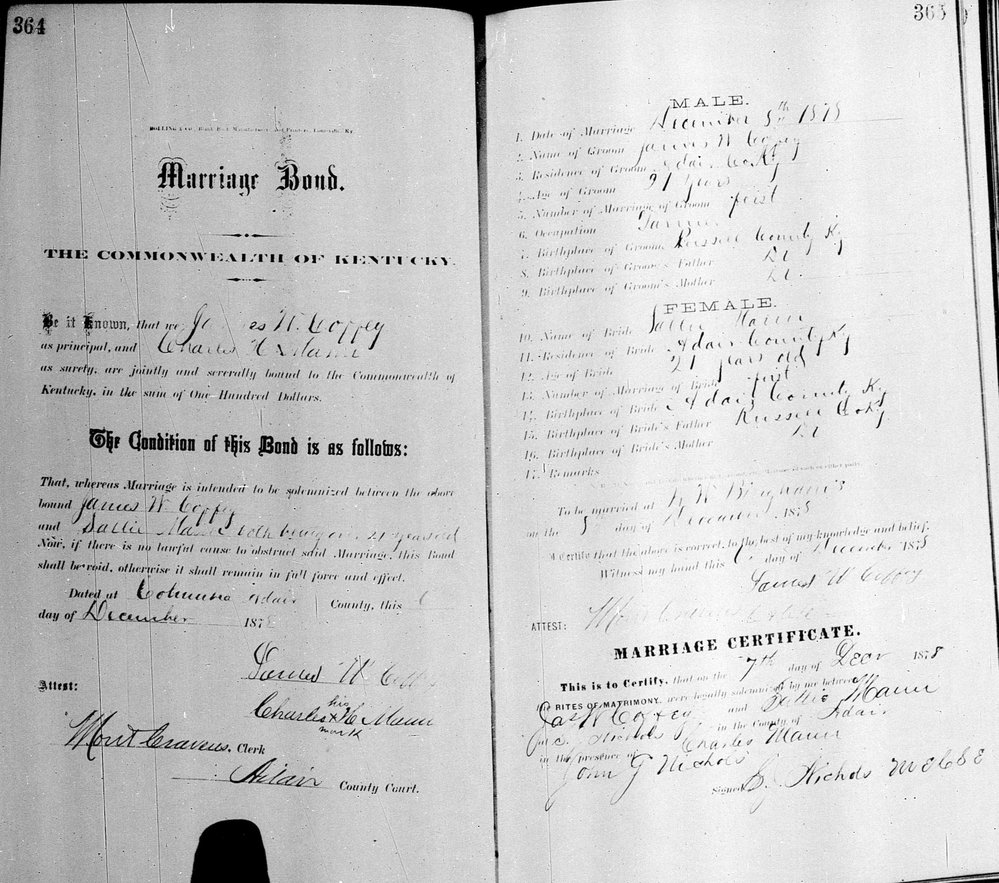 364
Marriage Bond.
THE COMMONWEALTH OF KENTUCKY.
Be it Known, that we James W. Coffey
as principal, and Charles H Mann
as surety, are jointly and severally bound to the Commonwealth of
Kentucky, in the sum of One Hundred Dollars.
The Condition of this Bond is as follows:
That, whereas Marriage is intended to be solemnized between the above
bound James W Coffey
and Sallie Mann both 21 years old
Now, if there is no lawful cause to obstruct said Marriage, this Bond
shall be void, otherwise it shall remain in full force and effect.
Dated at Columbia Adair County, this 6
day of December 1878
James W Coffey
Attest:
his
Charles x H Mann
mark
Mont Cravens, Clerk
Adair County Court.
365
MALE.
1. Date of Marriage December 8th 1878
2. Name of Groom James W Coffey
3. Residence of Groom Adair Co Ky
4. Age of Groom 21 years
5. Number of Marriage of Groom first
6. Occupation Farmer
7. Birthplace of Groom Russell County Ky
8. Birthplace of Groom's Father
9. Birthplace of Groom's Mother
FEMALE.
10. Name of Bride Sallie Mann
11. Residence of Bride Adair County Ky
12. Age of Bride 21 years old
13. Number of Marriage of Bride first
14. Birthplace of Bride Adair County Ky
15. Birthplace of Bride's Father Russell Co Ky
16. Birthplace of Bride's Mother
17. Remarks
To be married at W Bingham's
on the 8th day of December 1878
I Certify that the above is correct, to the best of my knowledge and belief.
Witness my hand this 6 day of December 1878
James W Coffey
ATTEST: Mont Cravens
MARRIAGE CERTIFICATE.
This is to Certify, that on the 7th day of Decr 1878
the RITES OF MATRIMONY, were legally solemnized by me between
Jas W Coffey and Sallie Mann
Nichols in the County of Adair
in the presence of Charles Mann
John J Nichols
Signed Nichols